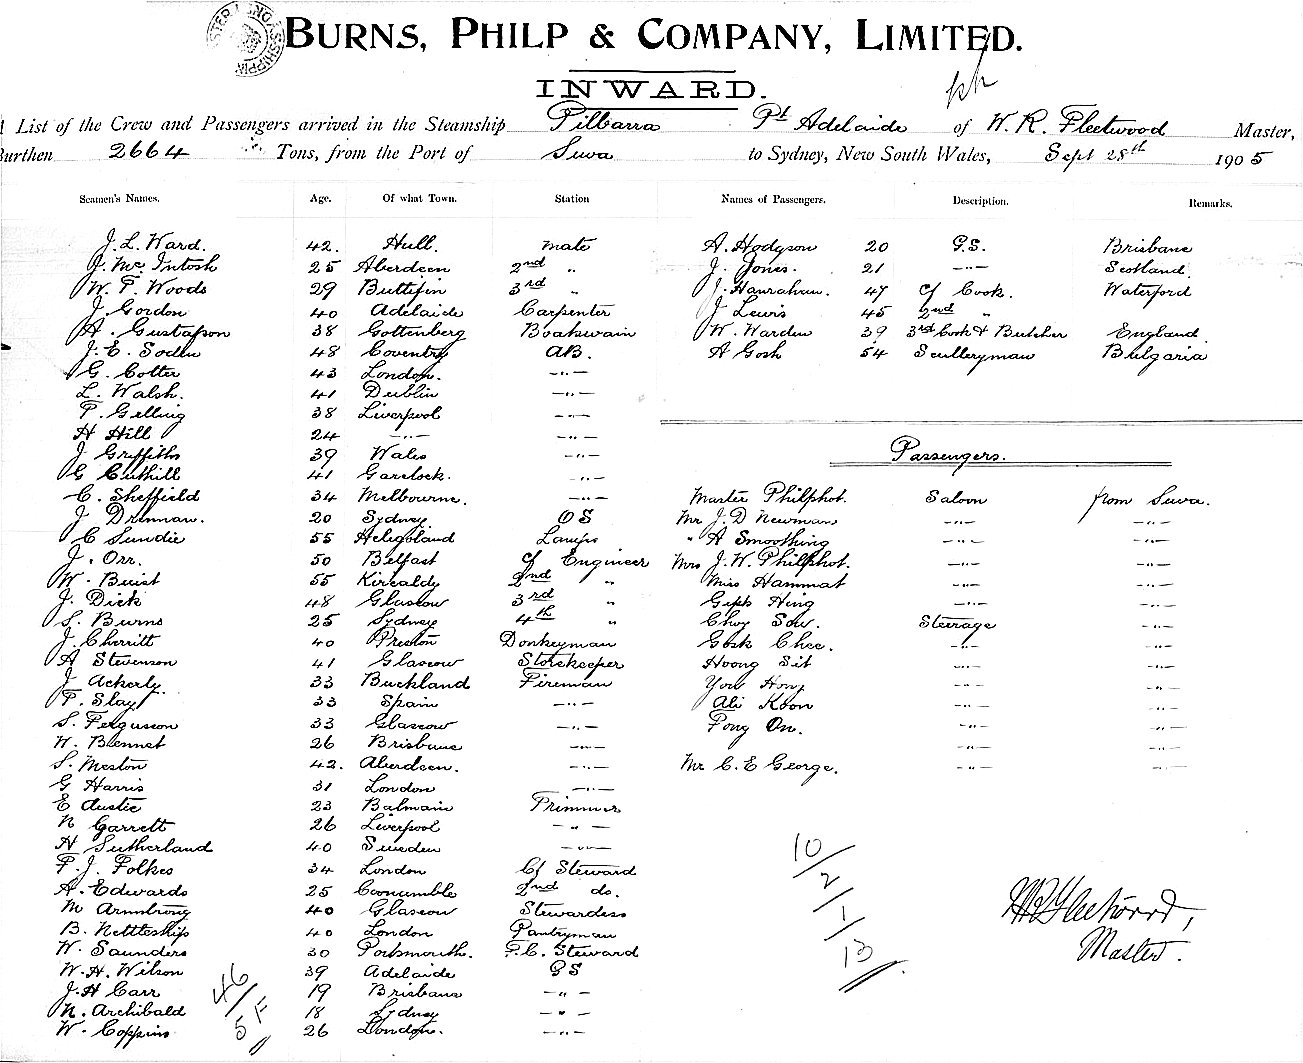 BURNS, PHILP & COMPANY, LIMITED.
INWARD.
List of the Crew and Passengers arrived in the Steamship Pilbarra Pt Adelaide of W. R. Fleetwood Master,
Burthen 2664 Tons, from the Port of Suva to Sydney, New South Wales, Sept 28th 1905
Seamen's Names. Age. Of what Town. Station Names of Passengers. Description. Remarks.
J. L. Ward. 42. Hull. mate A. Hodgson 20 G.S. Brisbane
J. McIntosh 25 Aberdeen 2nd " J. Jones. 21 -"- Scotland.
W. T. Woods 29 3rd " J. Hanrahan. 47 Cf Cook. Waterford
J. Gordon 40 Adelaide Carpenter J. Lewis 45 2nd "
A. Gustafson 38 Gottenberg Boatswain W. Warden 39 3rd Cook & Butcher England.
J. E. Soden 48 Coventry AB. A Gosh 54 Sculleryman Bulgaria
G. Cotter 43 London. -"-
L. Walsh. 41 Dublin -"-
T. Gelling 38 Liverpool -"-
H Hill 24 -"- -"-
J Griffiths 39 Wales -"-
G Cuthill 41 Garelock. -"-
C. Sheffield 34 Melbourne. -"-
J Drennan. 20 Sydney. OS
C Sundie 55 Heligoland Lamps
J. Orr. 50 Belfast Cf Engineer
W. Buist 55 Kircaldy 2nd "
J. Dick 48 Glasgow 3rd "
S. Burns 25 Sydney 4th "
J. Cherritt 40 Preston Donkeyman
A Stevenson 41 Glasgow Storekeeper
J Ackerly. 33 Buckland Fireman
F. Slay 33 Spain -"-
S. Ferguson 33 Glasgow -"-
H. Bennet 26 Brisbane -"-
S. Meston 42. Aberdeen. -"-
G Harris 31 London -"-
E Austic 23 Balmain Trimmer
N Garrett 26 Liverpool -"-
H Sutherland 40 Sweden -"-
F. J. Folkes 34 London Cf Steward
A. Edwards 25 Coonamble 2nd do.
M Armstrong 40 Glasgow Stewardess
B. Nettleship 40 London Pantryman
W. Saunders 30 Portsmouth. F.C. Steward
W. H. Wilson 39 Adelaide GS
J. H Carr 19 Brisbane -"-
N. Archibald 18 Sydney -"-
W. Coppins 26 London. -"-
46/5 F
Passengers.
Master Philphot. Saloon from Suva.
Mr J. D Newman -"- -"-
" A Smoothing -"- -"-
Mrs J. W. Philphot. -"- -"-
Miss Hammat -"- -"-
Hing -"- -"-
Choy Sow. Steerage -"-
Gock Chee. -"- -"-
Hoong Sit -"- -"-
You Hong -"- -"-
Ali Koon -"- -"-
Fong On. -"- -"-
-"- -"-
Mr C. E George. -"- -"-
10/2/1/13
W R Fleetwood,
Master.